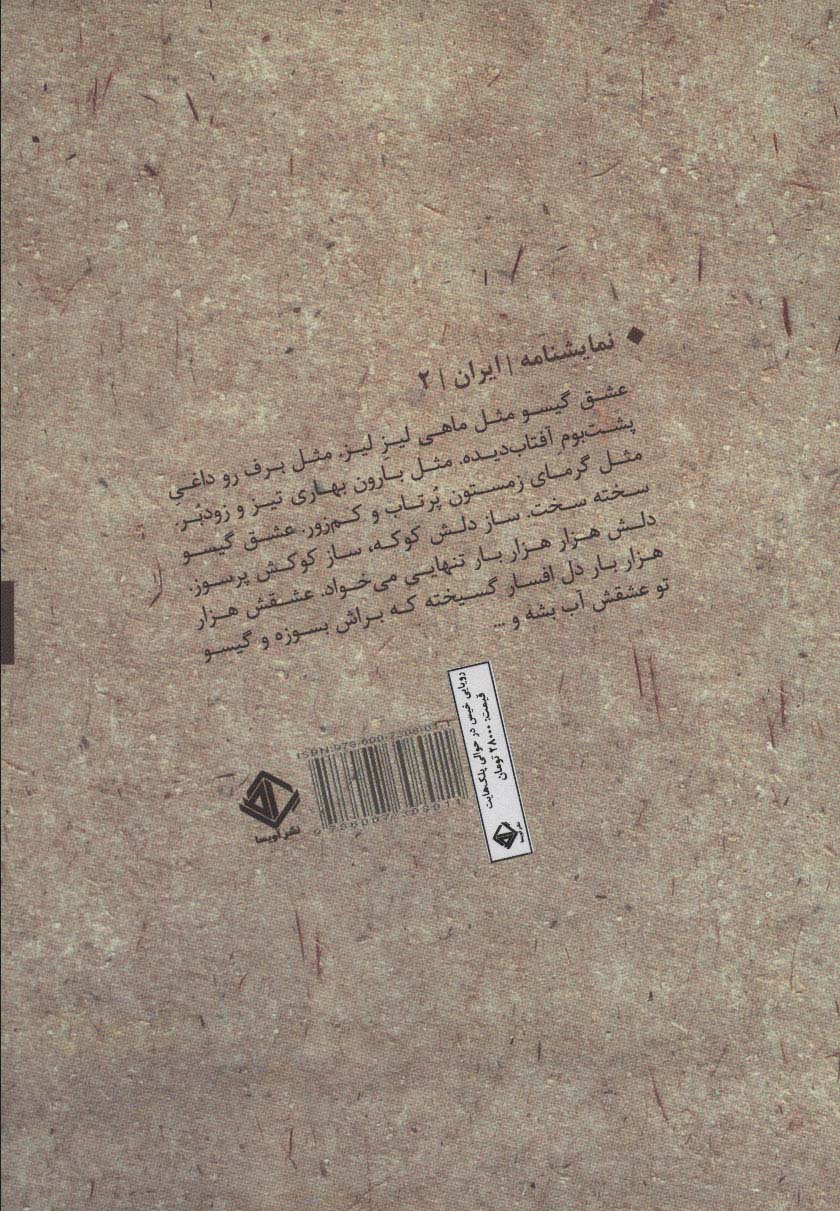 ◆ نمایشنامه | ایران | ۲
عشق گیسو مثل ماهی لیزِ لیز. مثل برف رو داغیِ
پشت‌بومِ آفتاب‌دیده. مثل بارون بهاری تیز و زودبُر.
مثل گرمای زمستون پُرتاب و کم‌زور. عشق گیسو
سخته سخت. ساز دلش کوکه، ساز کوکش پرسوز.
دلش هزار هزار بار تنهایی می‌خواد. عشقش هزار
هزار بار دل افسار گسیخته که براش بسوزه و گیسو
تو عشقش آب بشه و ...
رویایی خیس در حوالی پلک‌هایت
قیمت: ۲۸۰۰۰ تومان
نشر نویسا